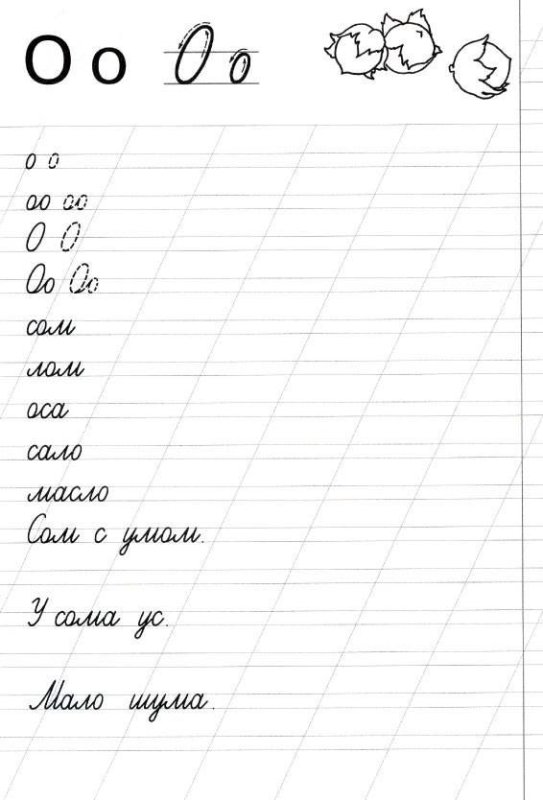 О о О о
о о
оо оо
О О
Оо Оо
сом
лом
оса
сало
масло
Сом с умом.
У сома ус.
Мало шума.